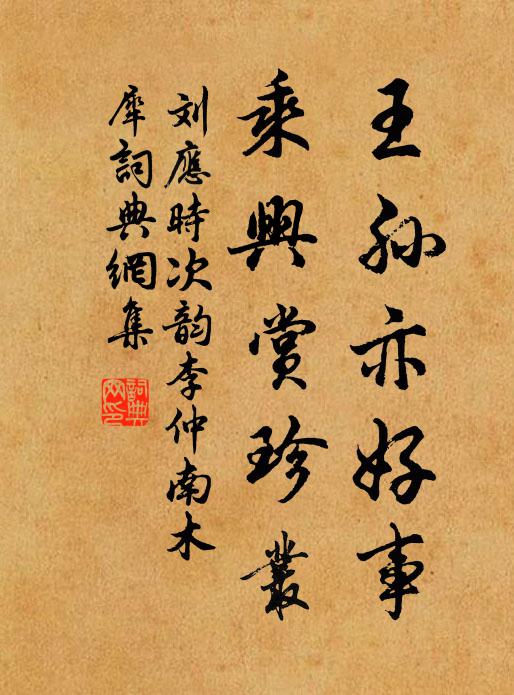 王孙亦好事
乘興賞珍叢
刘應時次韵李仲南木
犀詞典網集
詞典网印